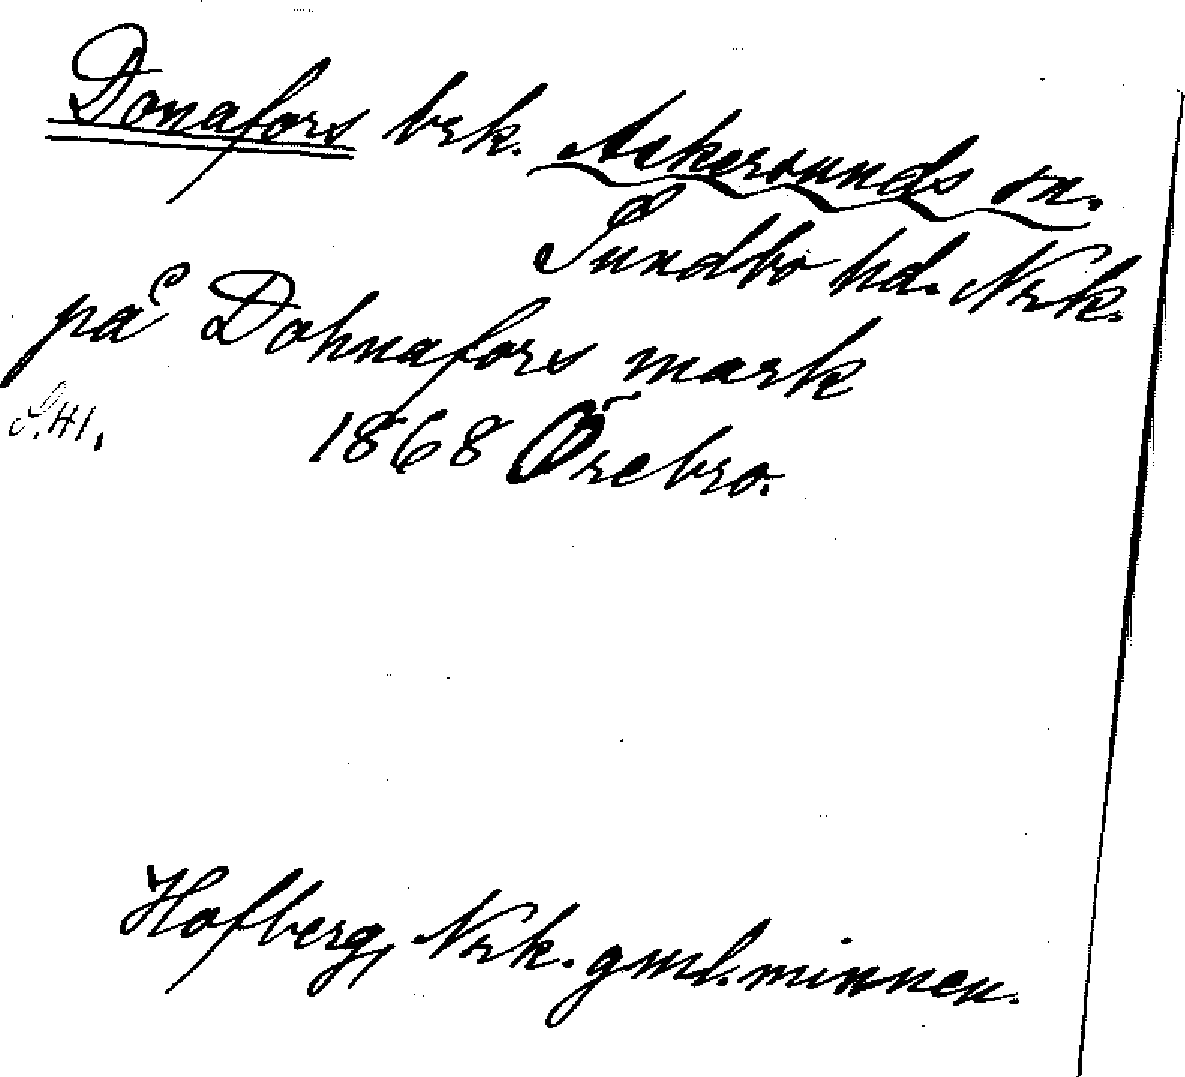 Donafors brk. Askersunds sn.
Sundbo hd. Nrk.
på Dohnafors mark
S.41. 1868 Örebro.
Hofberg, Nrk. gml. minnen.